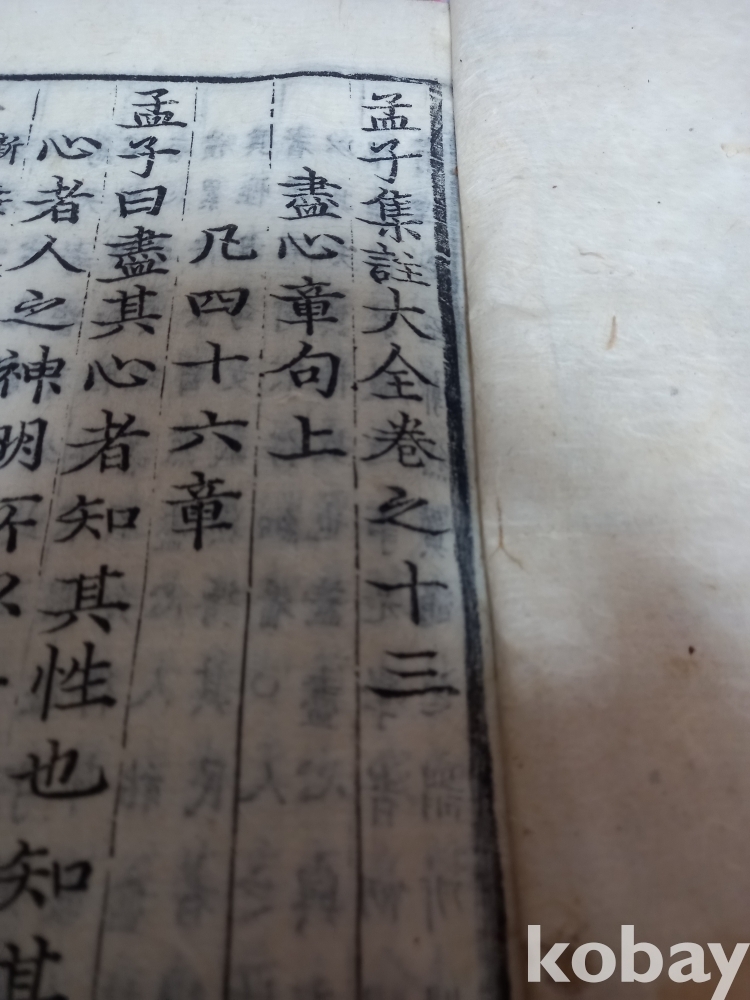 孟子集註大全卷之十三
盡心章句上
凡四十六章
孟子曰盡其心者知其性也知其
心者人之神明
新
kobay